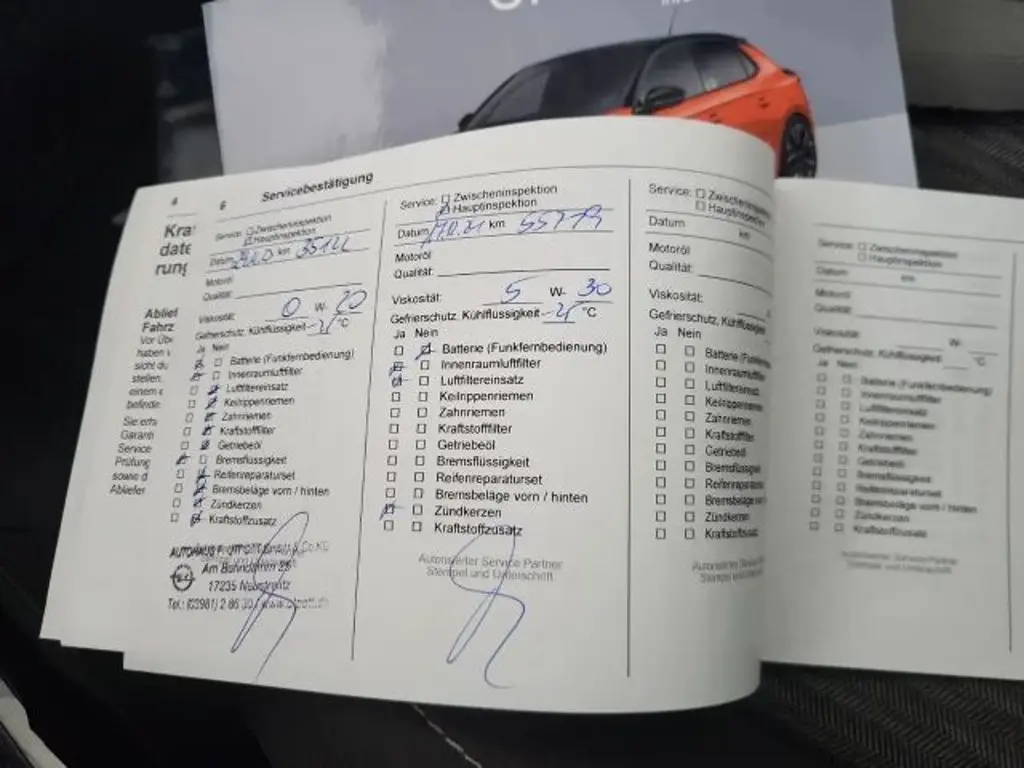 4
Kra
date
rung
Ablief
Fahrz
Vor Übe
haben v
sicht du
stellen.
einem
befinde
Sie erfa
Garanti
Service
Prüfung
sowie d
Abliefer
6 Servicebestätigung
Service: Zwischeninspektion
Hauptinspektion
Datum km
Motoröl
Qualität:
Viskosität: 0 W- 20
Gefrierschutz, Kühlflüssigkeit - °C
Ja Nein
Batterie (Funkfernbedienung)
Innenraumluftfilter
Luftfiltereinsatz
Keilrippenriemen
Zahnriemen
Kraftstofffilter
Getriebeöl
Bremsflüssigkeit
Reifenreparaturset
Bremsbeläge vorn / hinten
Zündkerzen
Kraftstoffzusatz
AUTOHAUS
Am Bahndamm
17235 Neustrelitz
Tel.: (03981) 2 86
Service: Zwischeninspektion
Hauptinspektion
Datum km
Motoröl
Qualität:
Viskosität: 5 W- 30
Gefrierschutz, Kühlflüssigkeit - °C
Ja Nein
Batterie (Funkfernbedienung)
Innenraumluftfilter
Luftfiltereinsatz
Keilrippenriemen
Zahnriemen
Kraftstofffilter
Getriebeöl
Bremsflüssigkeit
Reifenreparaturset
Bremsbeläge vorn / hinten
Zündkerzen
Kraftstoffzusatz
Autorisierter Service Partner
Stempel und Unterschrift
Service: Zwischeninspektion
Hauptinspektion
Datum km
Motoröl
Qualität:
Viskosität:
Gefrierschutz, Kühlflüssigkeit
Ja Nein
Batterie (Funkfern
Innenraumluftfilter
Luftfiltereinsatz
Keilrippenriemen
Zahnriemen
Kraftstofffilter
Getriebeöl
Bremsflüssigkeit
Reifenreparaturset
Bremsbeläge vorn
Zündkerzen
Kraftstoffzusatz
Autorisierter Service
Stempel und
Service: Zwischeninspektion
Hauptinspektion
Datum km
Motoröl
Qualität:
Viskosität: W-
Gefrierschutz, Kühlflüssigkeit °C
Ja Nein
Batterie (Funkfernbedienung)
Innenraumluftfilter
Luftfiltereinsatz
Keilrippenriemen
Zahnriemen
Kraftstofffilter
Getriebeöl
Bremsflüssigkeit
Reifenreparaturset
Bremsbeläge vorn / hinten
Zündkerzen
Kraftstoffzusatz
Autorisierter Service Partner
Stempel und Unterschrift